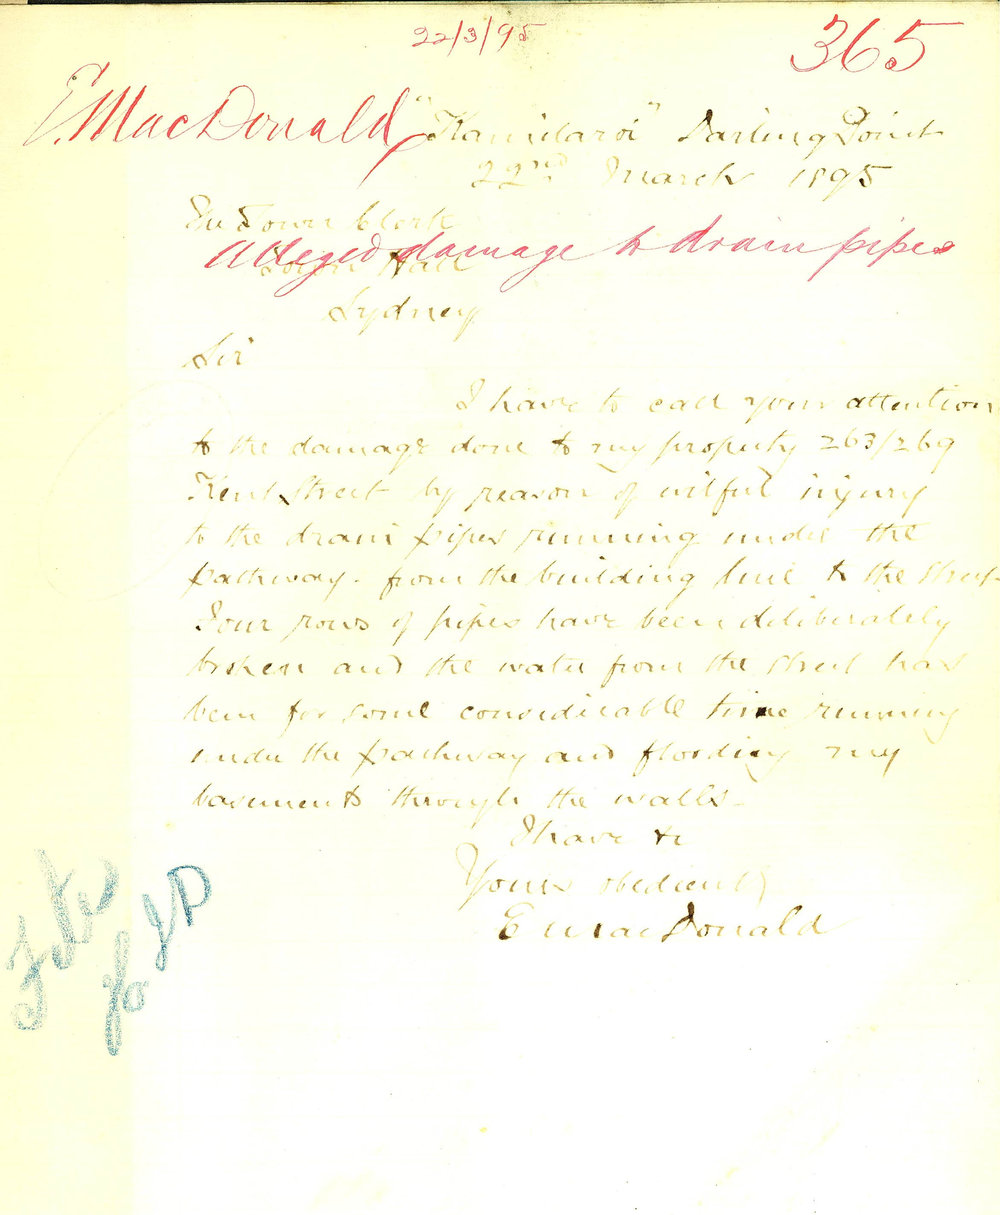 22/3/95
365
E. MacDonald
"Kamilaroi" Darling Point
22nd March 1895
The Town Clerk
Alleged damage to drain pipes
Town Hall
Sydney
Sir
I have to call your attention
to the damage done to my property 263/269
Kent Street by reason of wilful injury
to the drain pipes running under the
pathway - from the building line to the street.
Four rows of pipes have been deliberately
broken and the water from the street has
been for some considerable time running
under the pathway and flooding my
basements through the walls.
I have &c
Yours obediently
E MacDonald